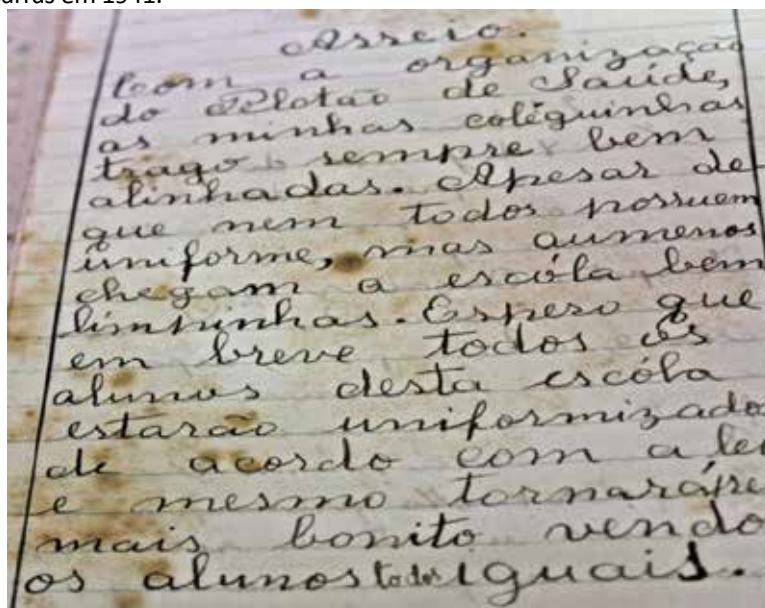 em 1941.
Asseio.
Com a organização
do Pelotão de Saúde,
as minhas coléguinhas
trago sempre bem
alinhadas. Apesar de
que nem todos possuem
uniforme, mas aumenos
chegam a escóla bem
limpinhas. Espero que
em breve todos os
alunos desta escóla
estarão uniformizado
de acordo com a lei
e mesmo tornará
mais bonito vendo
os alunos todos iguais.